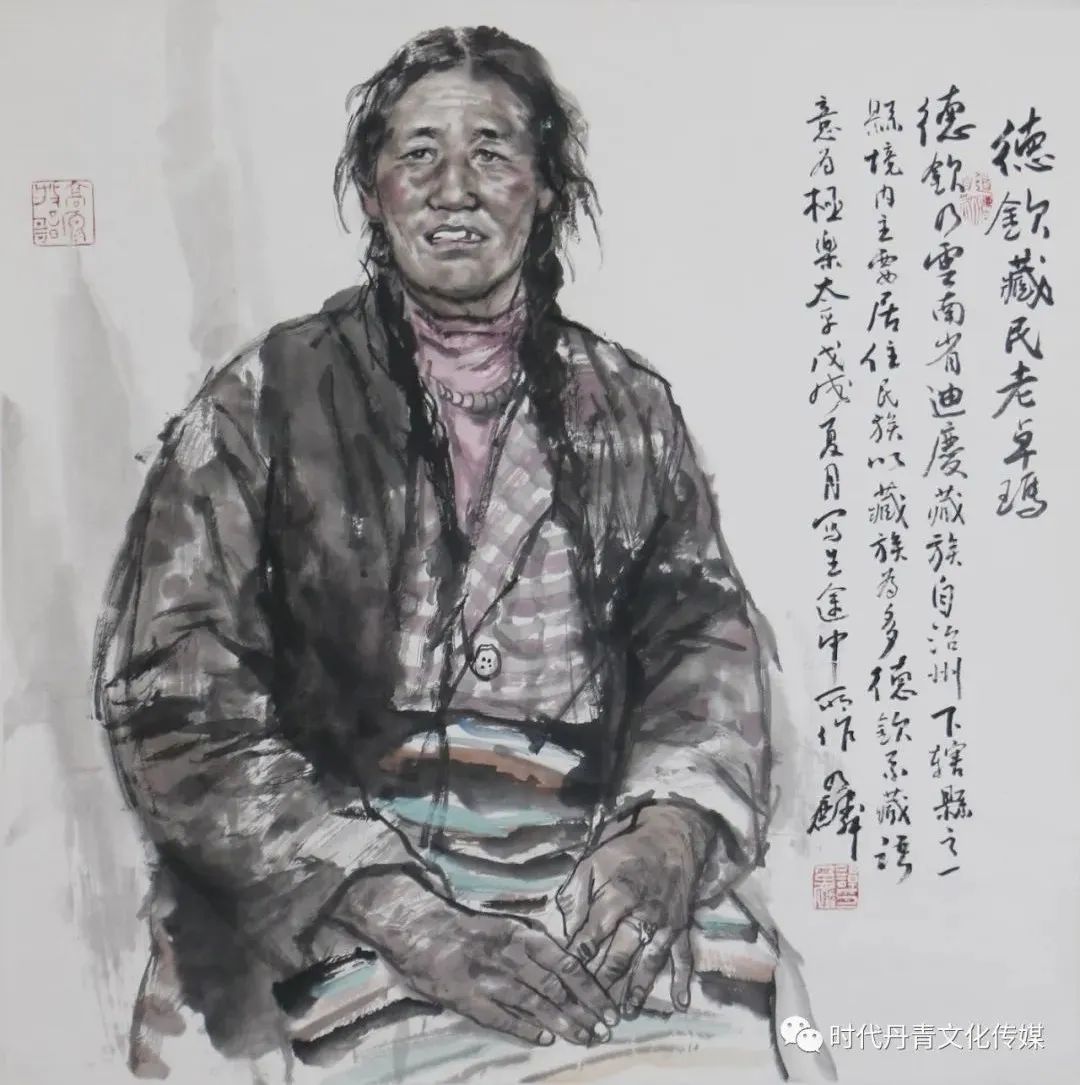 德欽藏民老卓瑪
德欽乃雲南省迪慶藏族自治州下轄縣之一
縣境内主要居住民族以藏族为多德欽系藏語
意为極樂太平戊戌夏月写生途中所作 乃麟
时代丹青文化传媒